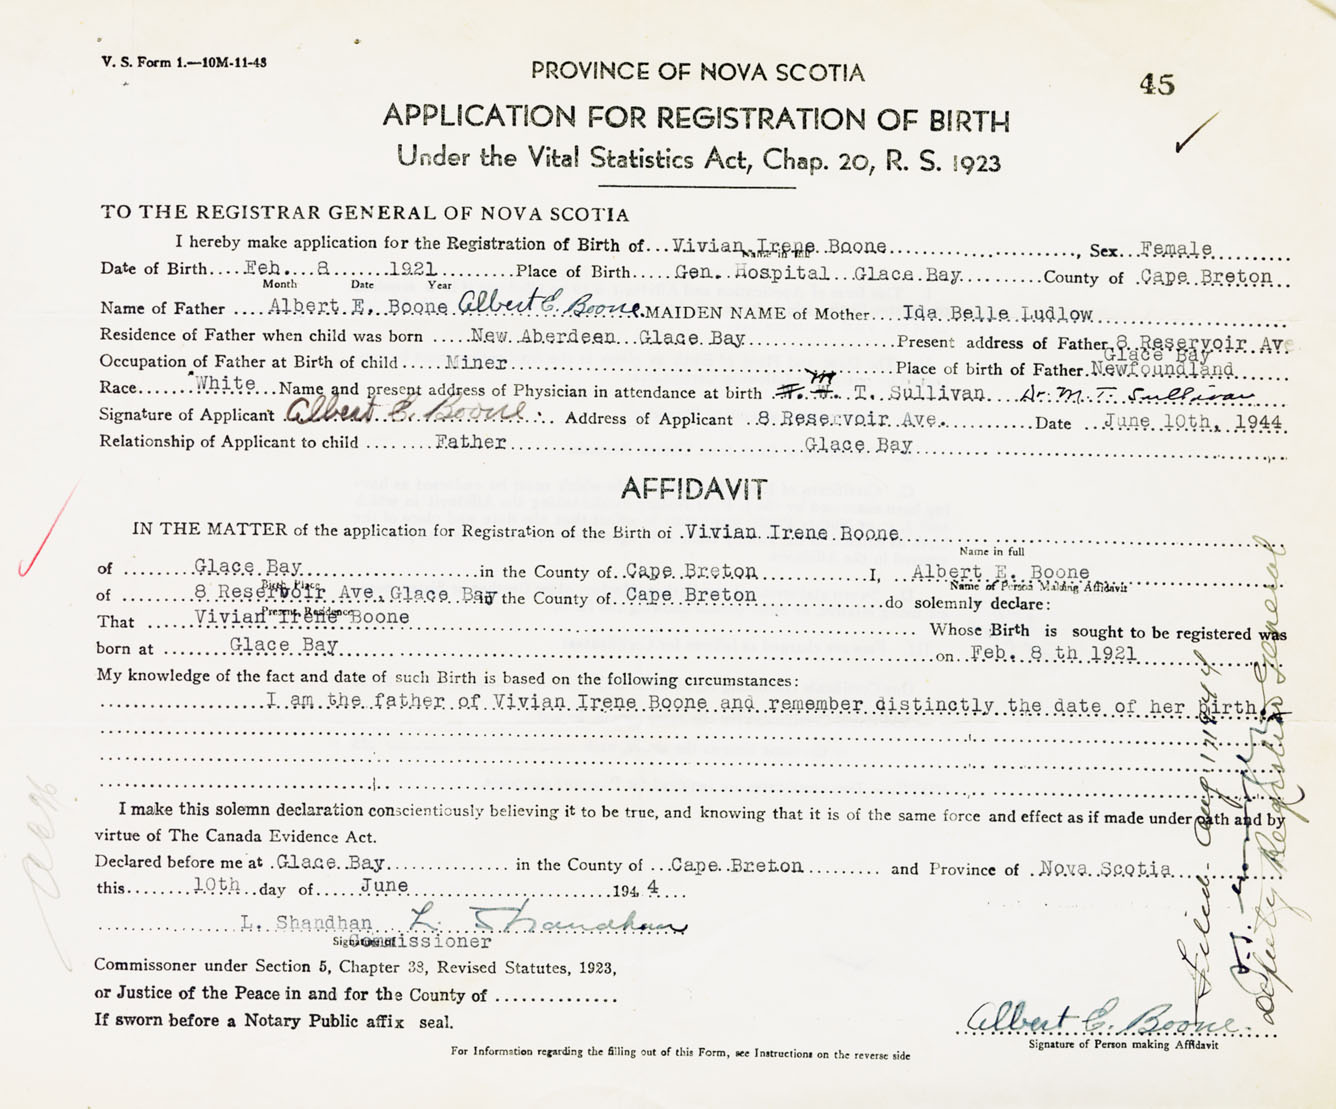 V. S. Form 1.—10M-11-43
PROVINCE OF NOVA SCOTIA
45
APPLICATION FOR REGISTRATION OF BIRTH
Under the Vital Statistics Act, Chap. 20, R. S. 1923
TO THE REGISTRAR GENERAL OF NOVA SCOTIA
I hereby make application for the Registration of Birth of... Vivian Irene Boone ...................., Sex.. Female
Name in full
Date of Birth.... Feb. 8 1921 ........ Place of Birth..... Gen. Hospital Glace Bay .......... County of Cape Breton
Month Date Year
Name of Father .... Albert E. Boone Albert E. Boone. MAIDEN NAME of Mother.... Ida Belle Ludlow
Residence of Father when child was born ..... New Aberdeen Glace Bay ................ Present address of Father 8 Reservoir Ave
Glace Bay
Occupation of Father at Birth of child ..... Miner ................ Place of birth of Father. Newfoundland
Race...... White ... Name and present address of Physician in attendance at birth M T. Sullivan Dr. M. T. Sullivan
Signature of Applicant Albert E. Boone Address of Applicant . 8 Reservoir Ave. ............ Date .. June 10th, 1944
Relationship of Applicant to child ........ Father ................ Glace Bay
AFFIDAVIT
IN THE MATTER of the application for Registration of the Birth of . Vivian Irene Boone
Name in full
of ........ Glace Bay ................ in the County of.. Cape Breton ............ I, .. Albert E. Boone
Birth Place Name of Person Making Affidavit
of ........ 8 Reservoir Ave. Glace Bay the County of Cape Breton ................ do solemnly declare:
Present Residence
That ...... Vivian Irene Boone ................ Whose Birth is sought to be registered was
born at ........ Glace Bay ................ on .. Feb. 8 th 1921
My knowledge of the fact and date of such Birth is based on the following circumstances:
I am the father of Vivian Irene Boone and remember distinctly the date of her birth.
I make this solemn declaration conscientiously believing it to be true, and knowing that it is of the same force and effect as if made under oath and by
virtue of The Canada Evidence Act.
Declared before me at . Glace Bay ............ in the County of ... Cape Breton ......... and Province of . Nova Scotia
this........ 10th .. day of .... June ................ 194 4 ....
L. Shandhan L. Shandhan
Signature of
Commissioner
Commissoner under Section 5, Chapter 38, Revised Statutes, 1923,
or Justice of the Peace in and for the County of ..............
If sworn before a Notary Public affix seal.
Albert E. Boone
Signature of Person making Affidavit
For Information regarding the filling out of this Form, see Instructions on the reverse side
Filed - Aug 17 1944
Deputy Registrar General